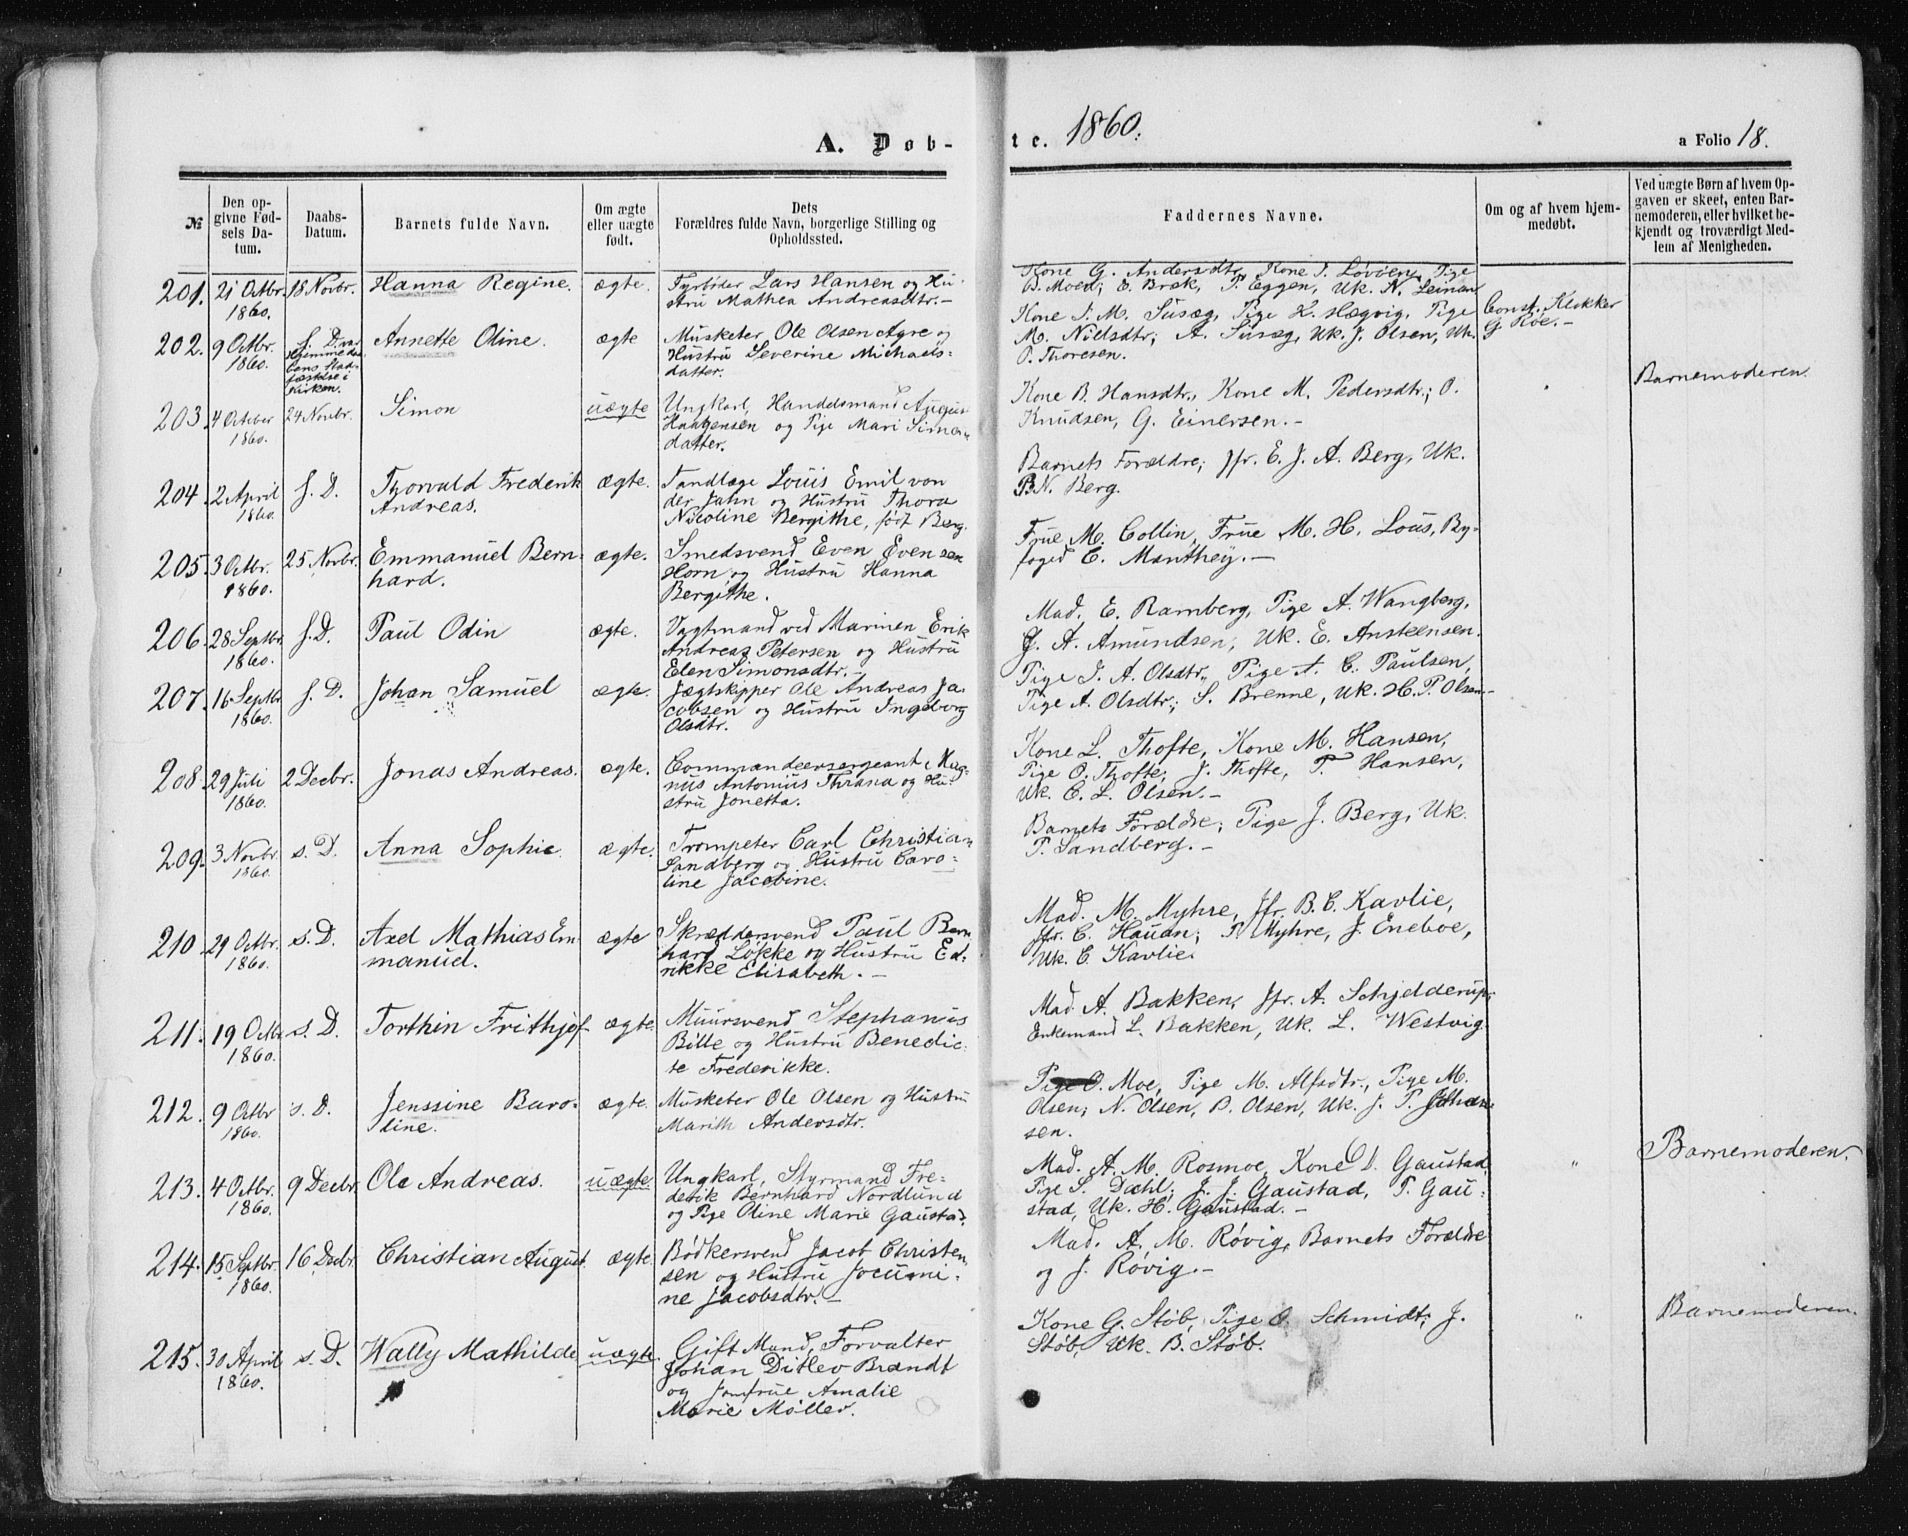 A. Døb-
te. 1860.
a Folio 18.
№
Den op-
givne Fød-
sels Da-
tum.
Daabs-
Datum.
Barnets fulde Navn.
Om ægte
eller uægte
født.
Dets
Forældres fulde Navn, borgerlige Stilling og
Opholdssted.
Faddernes Navne.
Om og af hvem hjem-
medøbt.
Ved uægte Børn af hvem Op-
gaven er skeet, enten Bar-
nemoderen, eller hvilket be-
kjendt og troværdigt Med-
lem af Menigheden.
201. 21 Octbr. 1860. 18 Novbr. Hanna Regine. ægte.
Fyrbøder Lars Hansen og Hu-
stru Mathea Andreasdtr.-
Kone G. Andersdtr, Kone J. Lovöen, Pige
B. Moen; E. Bræk, P. Eggen, Uk. N. Leinan
202. 9 Octbr. 1860. s. D. var
Hjemmedaa-
bens Stad-
fæstelse i
Kirken.
Annette Oline. ægte
Musketer Ole Olsen Agre og
Hustru Severine Michaels-
datter.
Kone J. M. Susæg, Pige K. Hægvig, Pige
M. Nielsdtr; A. Susæg, Uk. J. Olsen, Uk.
O. Thoresen.
Const. Klokker
G. Roe.-
203. 4 October 1860. 24 Novbr. Simon uægte
Ungkarl, Handelsmand August
Haagensen og Pige Mari Simon-
datter.
Kone B. Hansdtr., Kone M. Pedersdtr.; O.
Knudsen, G. Einersen.-
Barnemoderen.
204. 2 April 1860. s. D. Thorvald Frederik
Andreas. ægte.
Tandlæge Louis Emil von
der Jahn og Hustru Thora
Nicoline Bergithe, født Berg.
Barnets Forældre; Jfr. E. J. A. Berg, Uk.
B.N. Berg.
205. 3 Octbr. 1860. 25 Novbr. Emmanuel Bern-
hard. ægte.
Smedsvend Even Evensen
Horn og Hustru Hanna
Bergithe.
Frue M. Collin, Frue M. H. Lous, By-
foged C. Manthey.-
206. 28 Septbr. 1860. s. D. Paul Odin ægte.
Vagtmand ved Marinen Erik
Andreas Petersen og Hustru
Elen Simonsdtr.-
Mad. E. Ramberg, Pige A. Wangberg,
J. A. Amundsen, Uk. E. Ansteensen.
207. 16 Septbr. 1860. s. D. Johan Samuel ægte.
Jægtskipper Ole Andreas Ja-
cobsen og Hustru Ingeborg
Olsdtr.
Pige J. A. Olsdtr., Pige A. C. Paulsen,
Pige A. Olsdtr.; S. Brenne, Uk. H. P. Olsen-
208. 29 Juli 1860. 2 Decbr. Jonas Andreas. ægte.
Commandeersergeant, Mag-
nus Antonius Thrana og Hu-
stru Jonetta.
Kone L. Thofte, Kone M. Hansen,
Pige O. Thofte; J. Thofte, P. Hansen,
Uk. E. L. Olsen.-
209. 3 Novbr. 1860. s. D. Anna Sophie. ægte.
Trompeter Carl Christian
Sandberg og Hustru Caro-
line Jacobine.
Barnets Forældre; Pige J. Berg, Uk.
P. Sandberg.-
210. 29 Octbr. 1860. s. D. Axel Mathias Em-
manuel. ægte
Skræddersvend Paul Bern-
hard Løkke og Hustru Ed-
rikke Elisabeth.-
Mad. M. Myhre, Jfr. B. C. Kavlie,
Jfr. C. Hauan; P. Myhre, J. Eneboe,
Uk. C. Kavlie.
211. 19 Octbr. 1860. s. D. Torthin Frithjof ægte.
Muursvend Stephanus
Bille og Hustru Benedic-
te Frederikke.
Mad. A. Bakken, Jfr. A. Schjelderup;
Enkemand L. Bakken, Uk. L. Westvig
212. 9 Octbr 1860. s. D. Jenssine Baro-
line. ægte.
Musketer Ole Olsen og Hustru
Marith Andersdtr.
Pige O. Moe, Pige M. Alfsdtr., Pige M.
Olsen; N. Olsen, B. Olsen, Uk. J. P. Johan-
sen.
213. 4 Octbr. 1860. 9 Decbr. Ole Andreas. uægte.
Ungkarl, Styrmand Fre-
derik Bernhard Nordlund
og Pige Oline Marie Gaustad.
Mad. A. M. Rosmoe, Kone D. Gaustad,
Pige S. Dæhl; J. J. Gaustad, P. Gau-
stad, Uk. H. Gaustad.-
"
Barnemoderen.
214. 15 Septbr. 1860. 16 Decbr. Christian August. ægte.
Bødkersvend Jacob Christen-
sen og Hustru Jocumi-
ne Jacobsdtr.-
Mad. A. M. Røvig, Barnets Forældre
og J. Røvig.-
215. 30 April 1860. s. D. Wally Mathilde uægte.
Gift Mand, Forvalter
Johan Ditlev Brandt
og Jomfrue Amalie
Marie Møller.
Kone G. Støb, Pige O. Schmidt; J.
Støb, Uk. B. Støb.
"
Barnemoderen.